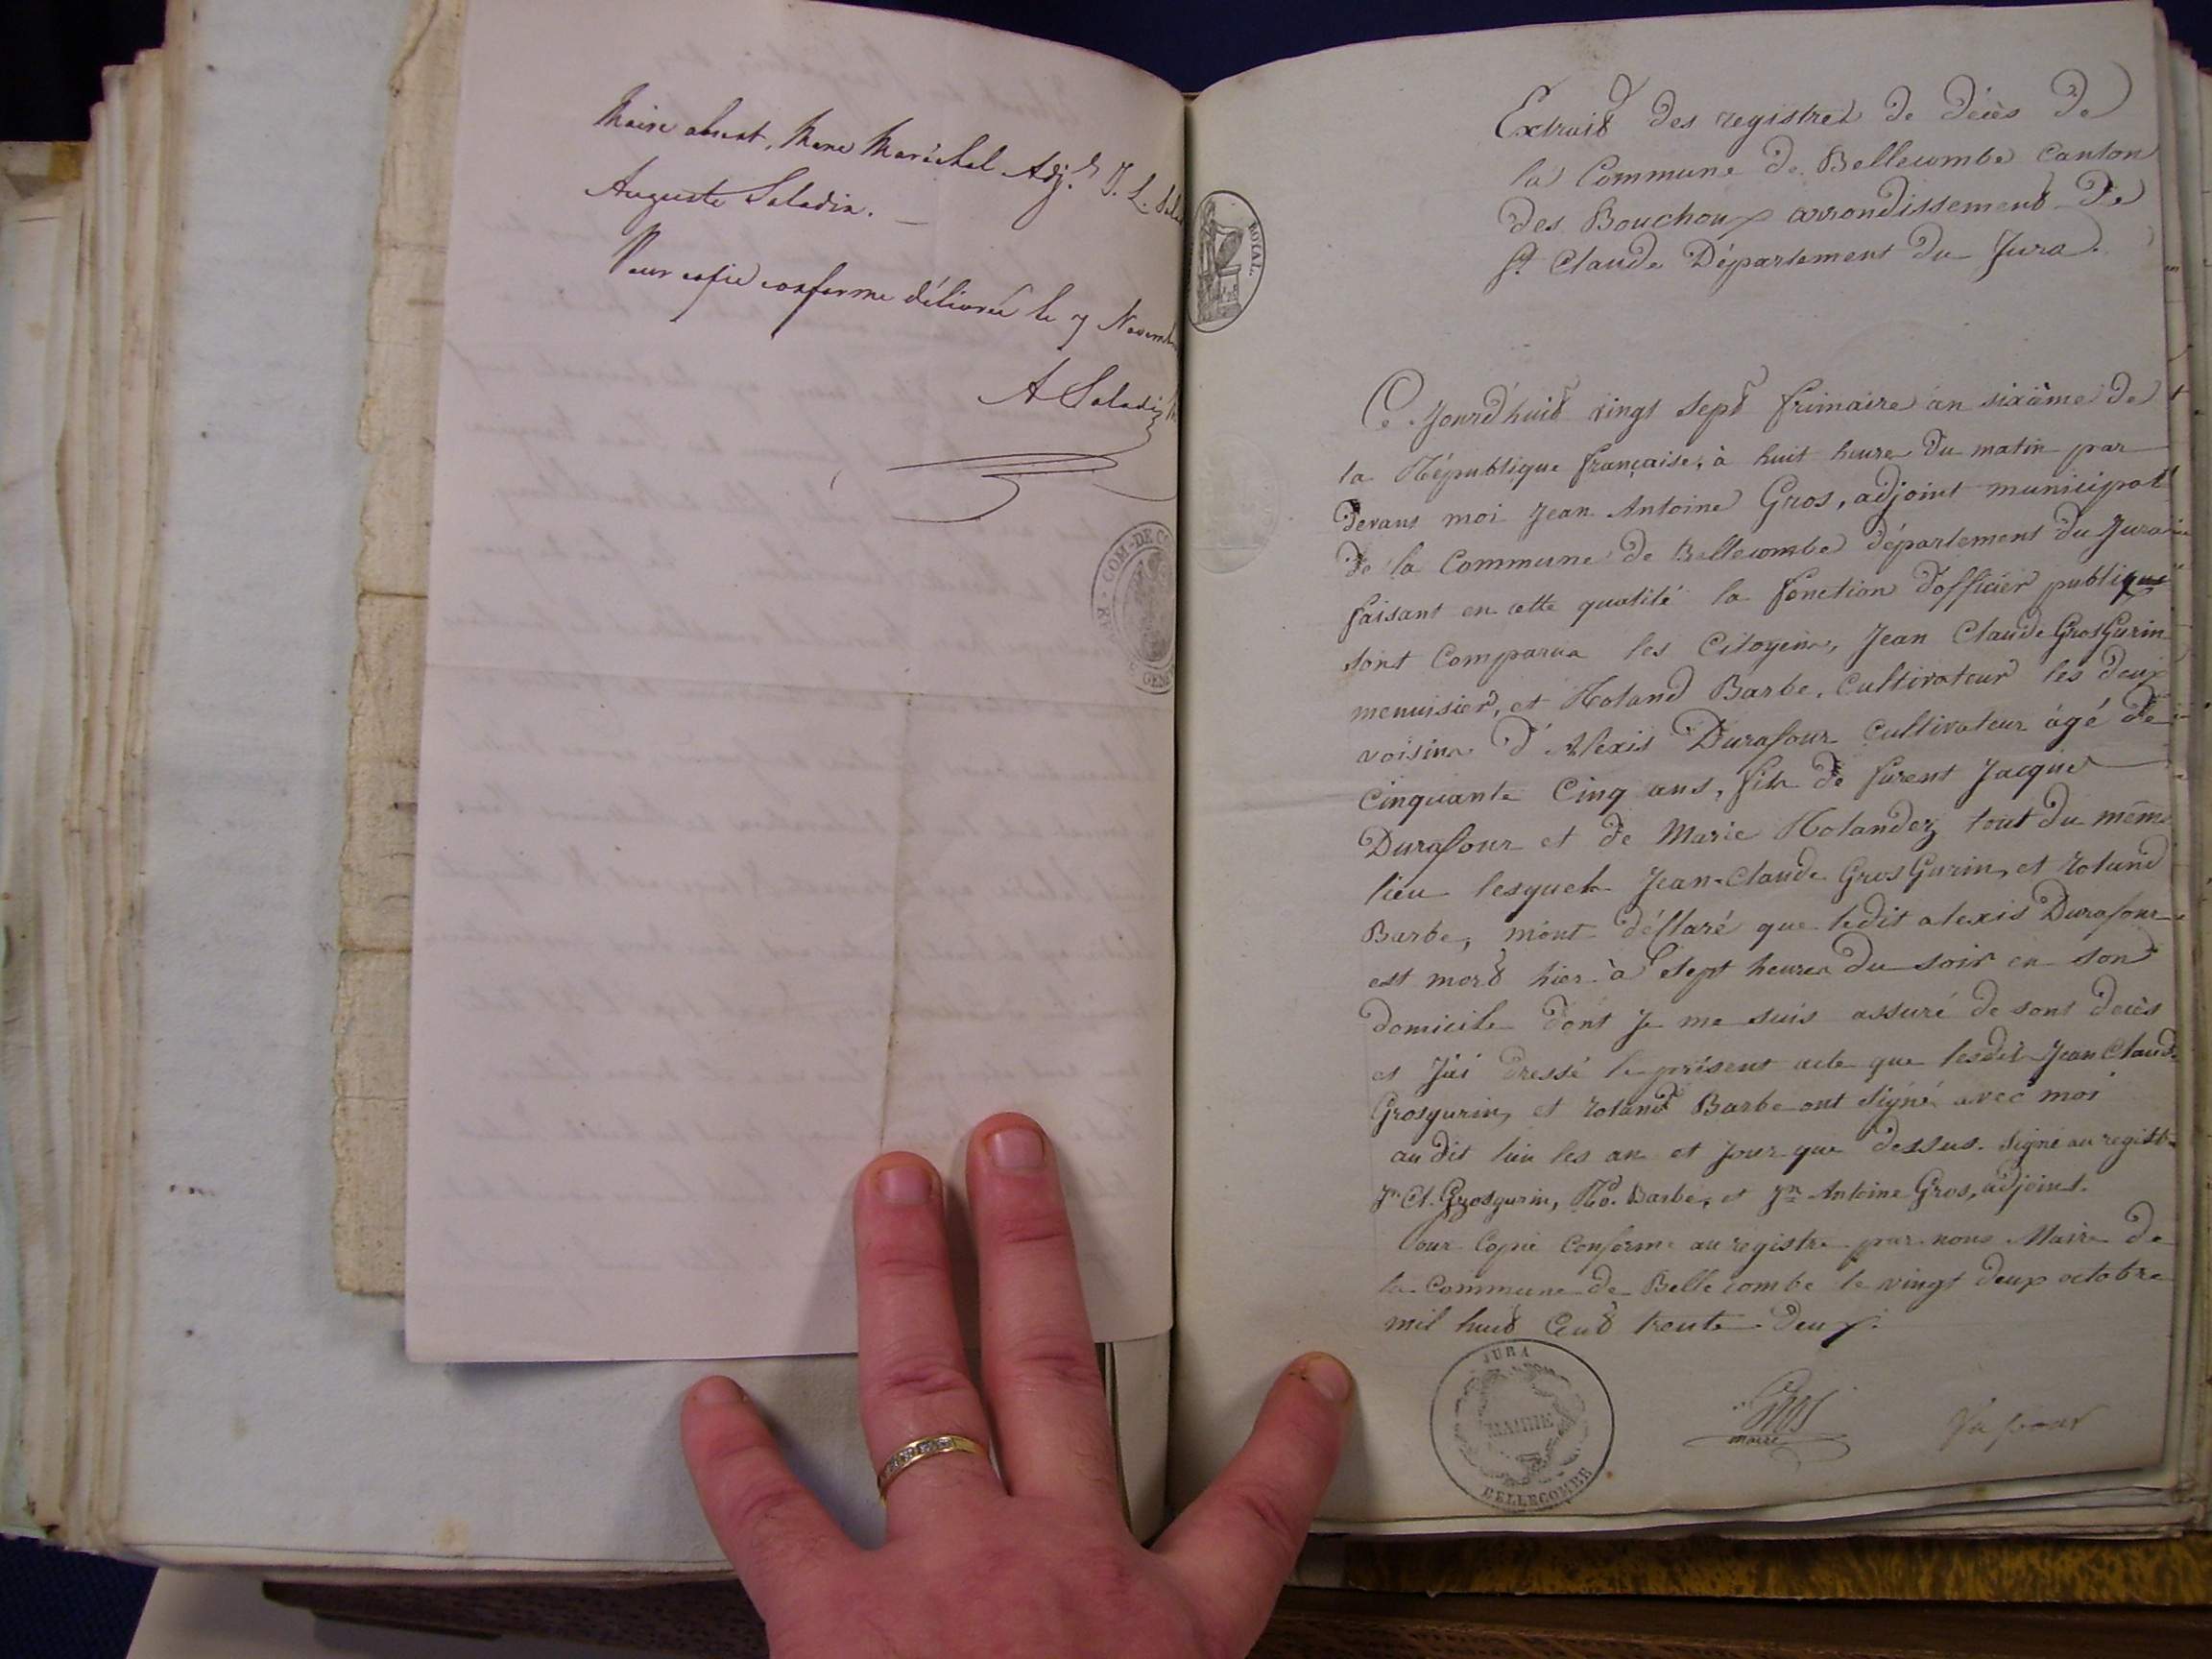 Maire absent, Marc Maréchal Adj.t J. L.
Auguste Saladin.
Pour copie conforme délivrée le 7 Novembre
A Saladin
COM-DE
GEN
ROYAL.
Extrait des registres de décès de
la Commune de Bellecombe Canton
des Bouchoux arrondissement de
St Claude Département du Jura.
Ce Jourd'huit vingt sept frimaire an sixième de
la République française, à huit heure du matin par
devant moi Jean Antoine Gros, adjoint municipal
de la Commune de Bellecombe département du Jura
faisant en cette qualité la fonction d'officier publique
sont Comparus les Citoyens, Jean Claude GrosGurin
menuisier, et Roland Barbe, Cultivateur les deux
voisins d'Alexis Durafour Cultivateur âgé de
Cinquante Cinq ans, fils de furent Jacque
Durafour et de Marie Rolandez tout du même
lieu lesquels Jean-Claude GrosGurin, et roland
Barbe, m'ont déflaré que ledit alexis Durafour
est mort hier à sept heures du soir en son
domicile dont Je me suis assuré de sont décès
et J'ai dressé le présent acte que lesdit Jean Claude
Grosgurin, et roland Barbe ont signé avec moi
au dit lieu les an et jour que dessus. signé au registre
Jn Cl. Grosgurin, Ro. Barbe, et Jn Antoine Gros, adjoint.
Pour Copie Conforme au registre par nous Maire de
la Commune de Bellecombe le vingt deux octobre
mil huit Cent trente deux.
JURA
MAIRIE
BELLECOMBE
Gros
maire